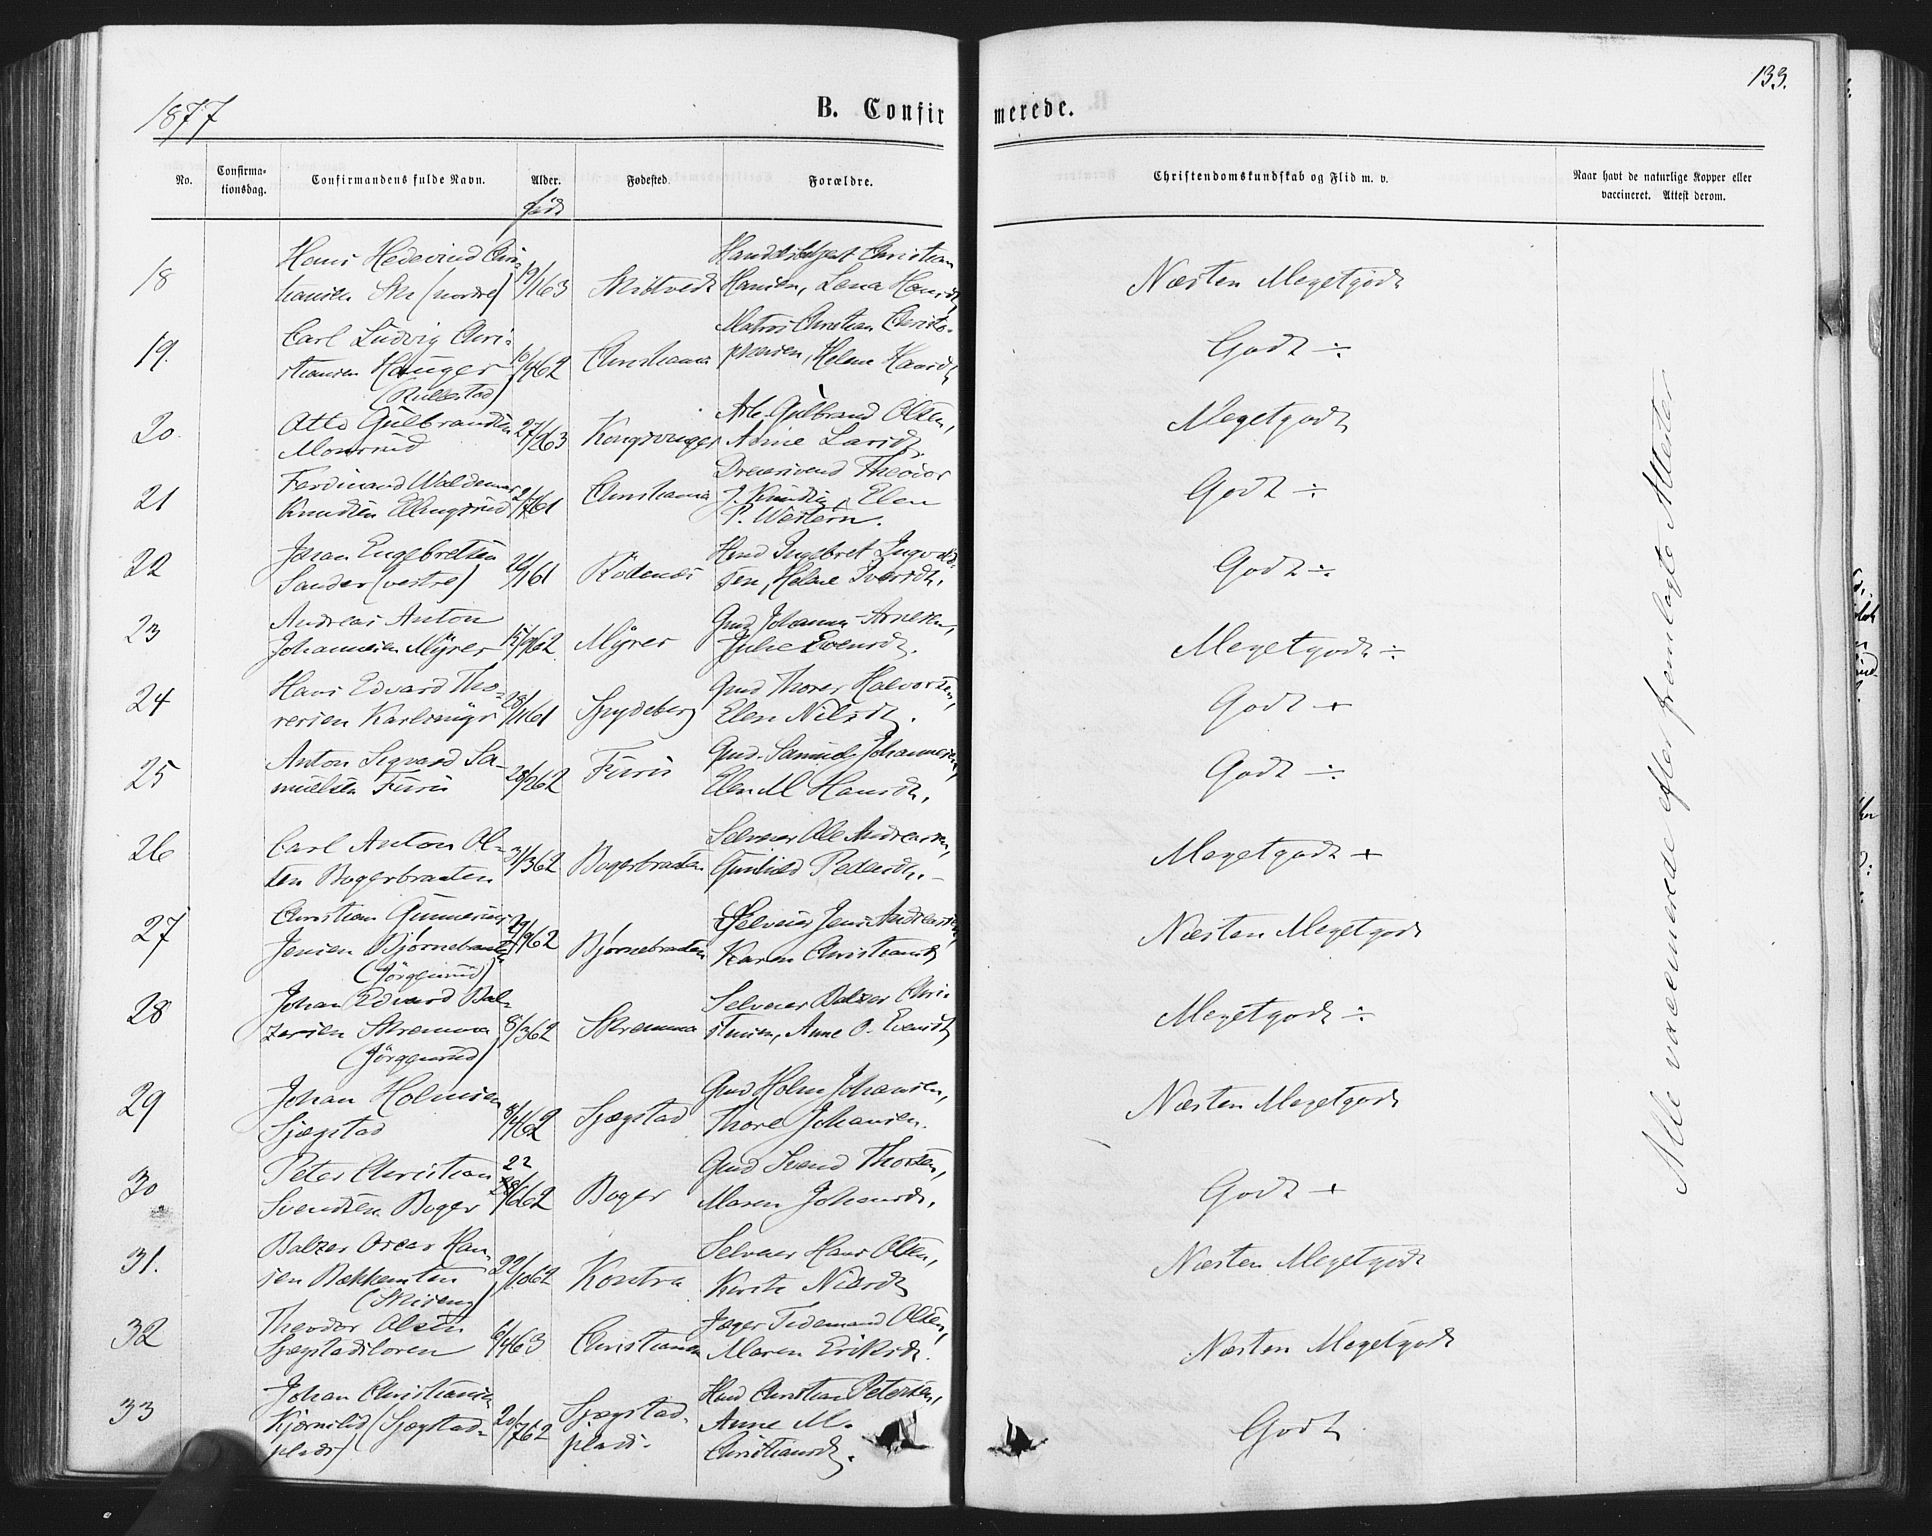 1877
B. Confirmerede.
133.
No.
Confirma-
tionsdag.
Confirmandens fulde Navn.
Alder.
født
Fødested.
Forældre.
Christendomskundskab og Flid m. v.
Naar havt de naturlige Kopper eller
vaccineret. Attest derom.
18
Hans Hedevind Chris-
tiansen Ski (nordre)
Skibtvedt
Christian
Hansen, Lena Hansdt
Næsten Megetgodt
19.
Carl Ludvig Chri-
stiansen Hauger
(Rullestad)
Christiania
Matros Christian Christo-
phersen, Helene Hansdt
Godt ÷
20.
Otto Gulbrandsen
Monsrud
27/2 63
Kongsvinger
Arb. Gulbrand Olsen,
Arine Larsdt.
Megetgodt
21
Ferdinand Waldemar
Knudsen Ellingsrud
Christiania
Dreiersvend Theodor
J. Knudsen, Elen
P. Western.
Godt ÷
22
Johan Engebretsen
Sander (vestre)
Rødenes
Hmd Ingebret Ingvold-
sen, Helene Iversdt.
Godt ÷
23
Andreas Anton
Johannesen Myrer
Myrer
Gmd Johannes Arnesen,
Julie Evensdt.
Megetgodt ÷
24
Hans Edvard Tho-
resen Karlsmyr
Spydeberg
Gmd Thorer Halvorsen,
Elen Nilsdt.
Godt +
25
Anton Sigvard Sa-
muelsen Furu
28/2 62
Furu
Gmd. Samuel Johannesen,
Elen M Hansdt.
Godt ÷
26
Carl Anton Ol-
sen Bogerbraaten
31/3 62
Bogerbraaten
Selveier Ole Andreassen,
Gunhild Pedersdt.
Megetgodt +
27
Christian Gunnerius
Jensen Bjørnebraaten
(Jørgensrud)
Bjørnebraaten
Selveier Jens Andreassen,
Karen Christiansdt
Næsten Megetgodt
28
Johan Edvard Bal-
zersen Skremma
(Jørgensrud)
8/3 62
Skremma
Selveier Balzer Chri-
stensen, Anne O. Evensdt
Megetgodt ÷
29
Johan Holmsen
Sjægstad
8/4 62
Sjægstad
Gmd Holm Johansen,
Thore Johansen.
Næsten Megetgodt
30
Peter Christian
Svendsen Boger
22/6 62
Boger
Gmd Svend Thorsen,
Maren Johansdt.
Godt +
31.
Balzer Oscar Han-
sen Bækkensten
(Skiseng)
22/10 62
Kontra
Selveier Hans Olsen,
Kirsti Nilsdt
Næsten Megetgodt
32
Theodor Olsen
Sjægstadsloren
6/4 63
Christiania
Jæger Tidemand Olsen,
Maren Eriksdt.
Næsten Megetgodt
33
Johan Christiansen
Kjærnslid (Sjægstad-
plads)
20/7 62
Sjægstad-
plads.
Hmd Christian Petersen,
Anne M.
Christiansdt.
Godt
Alle vaccinerede efter fremlagte Attester